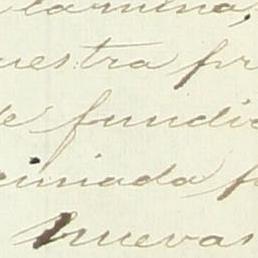 lamina,
uestra fr
de fundic
iniada f
nuevas